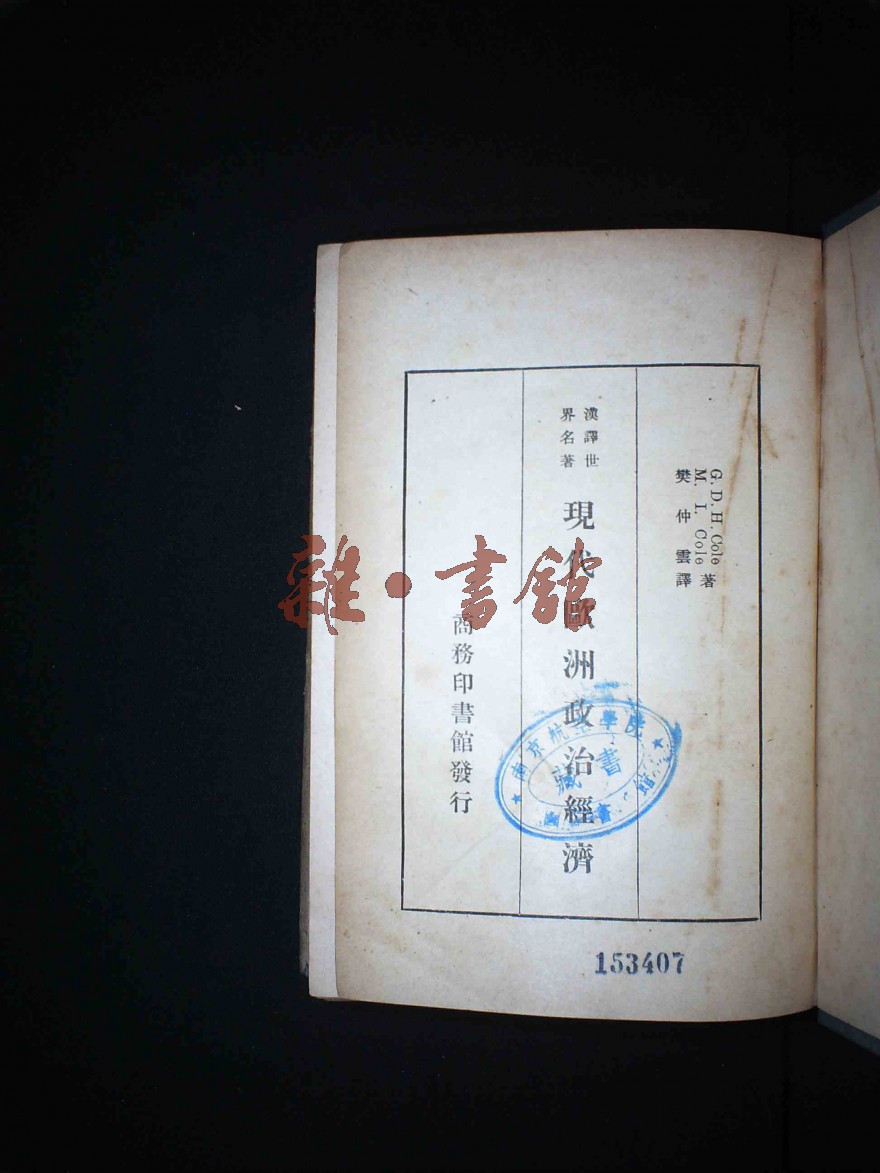 G. D. H. Cole
M. I. Cole 著
樊仲雲譯
漢譯世
界名著
現代歐洲政治經濟
商務印書館發行
南京航空學院
圖書館
藏書
153407
雜·書館